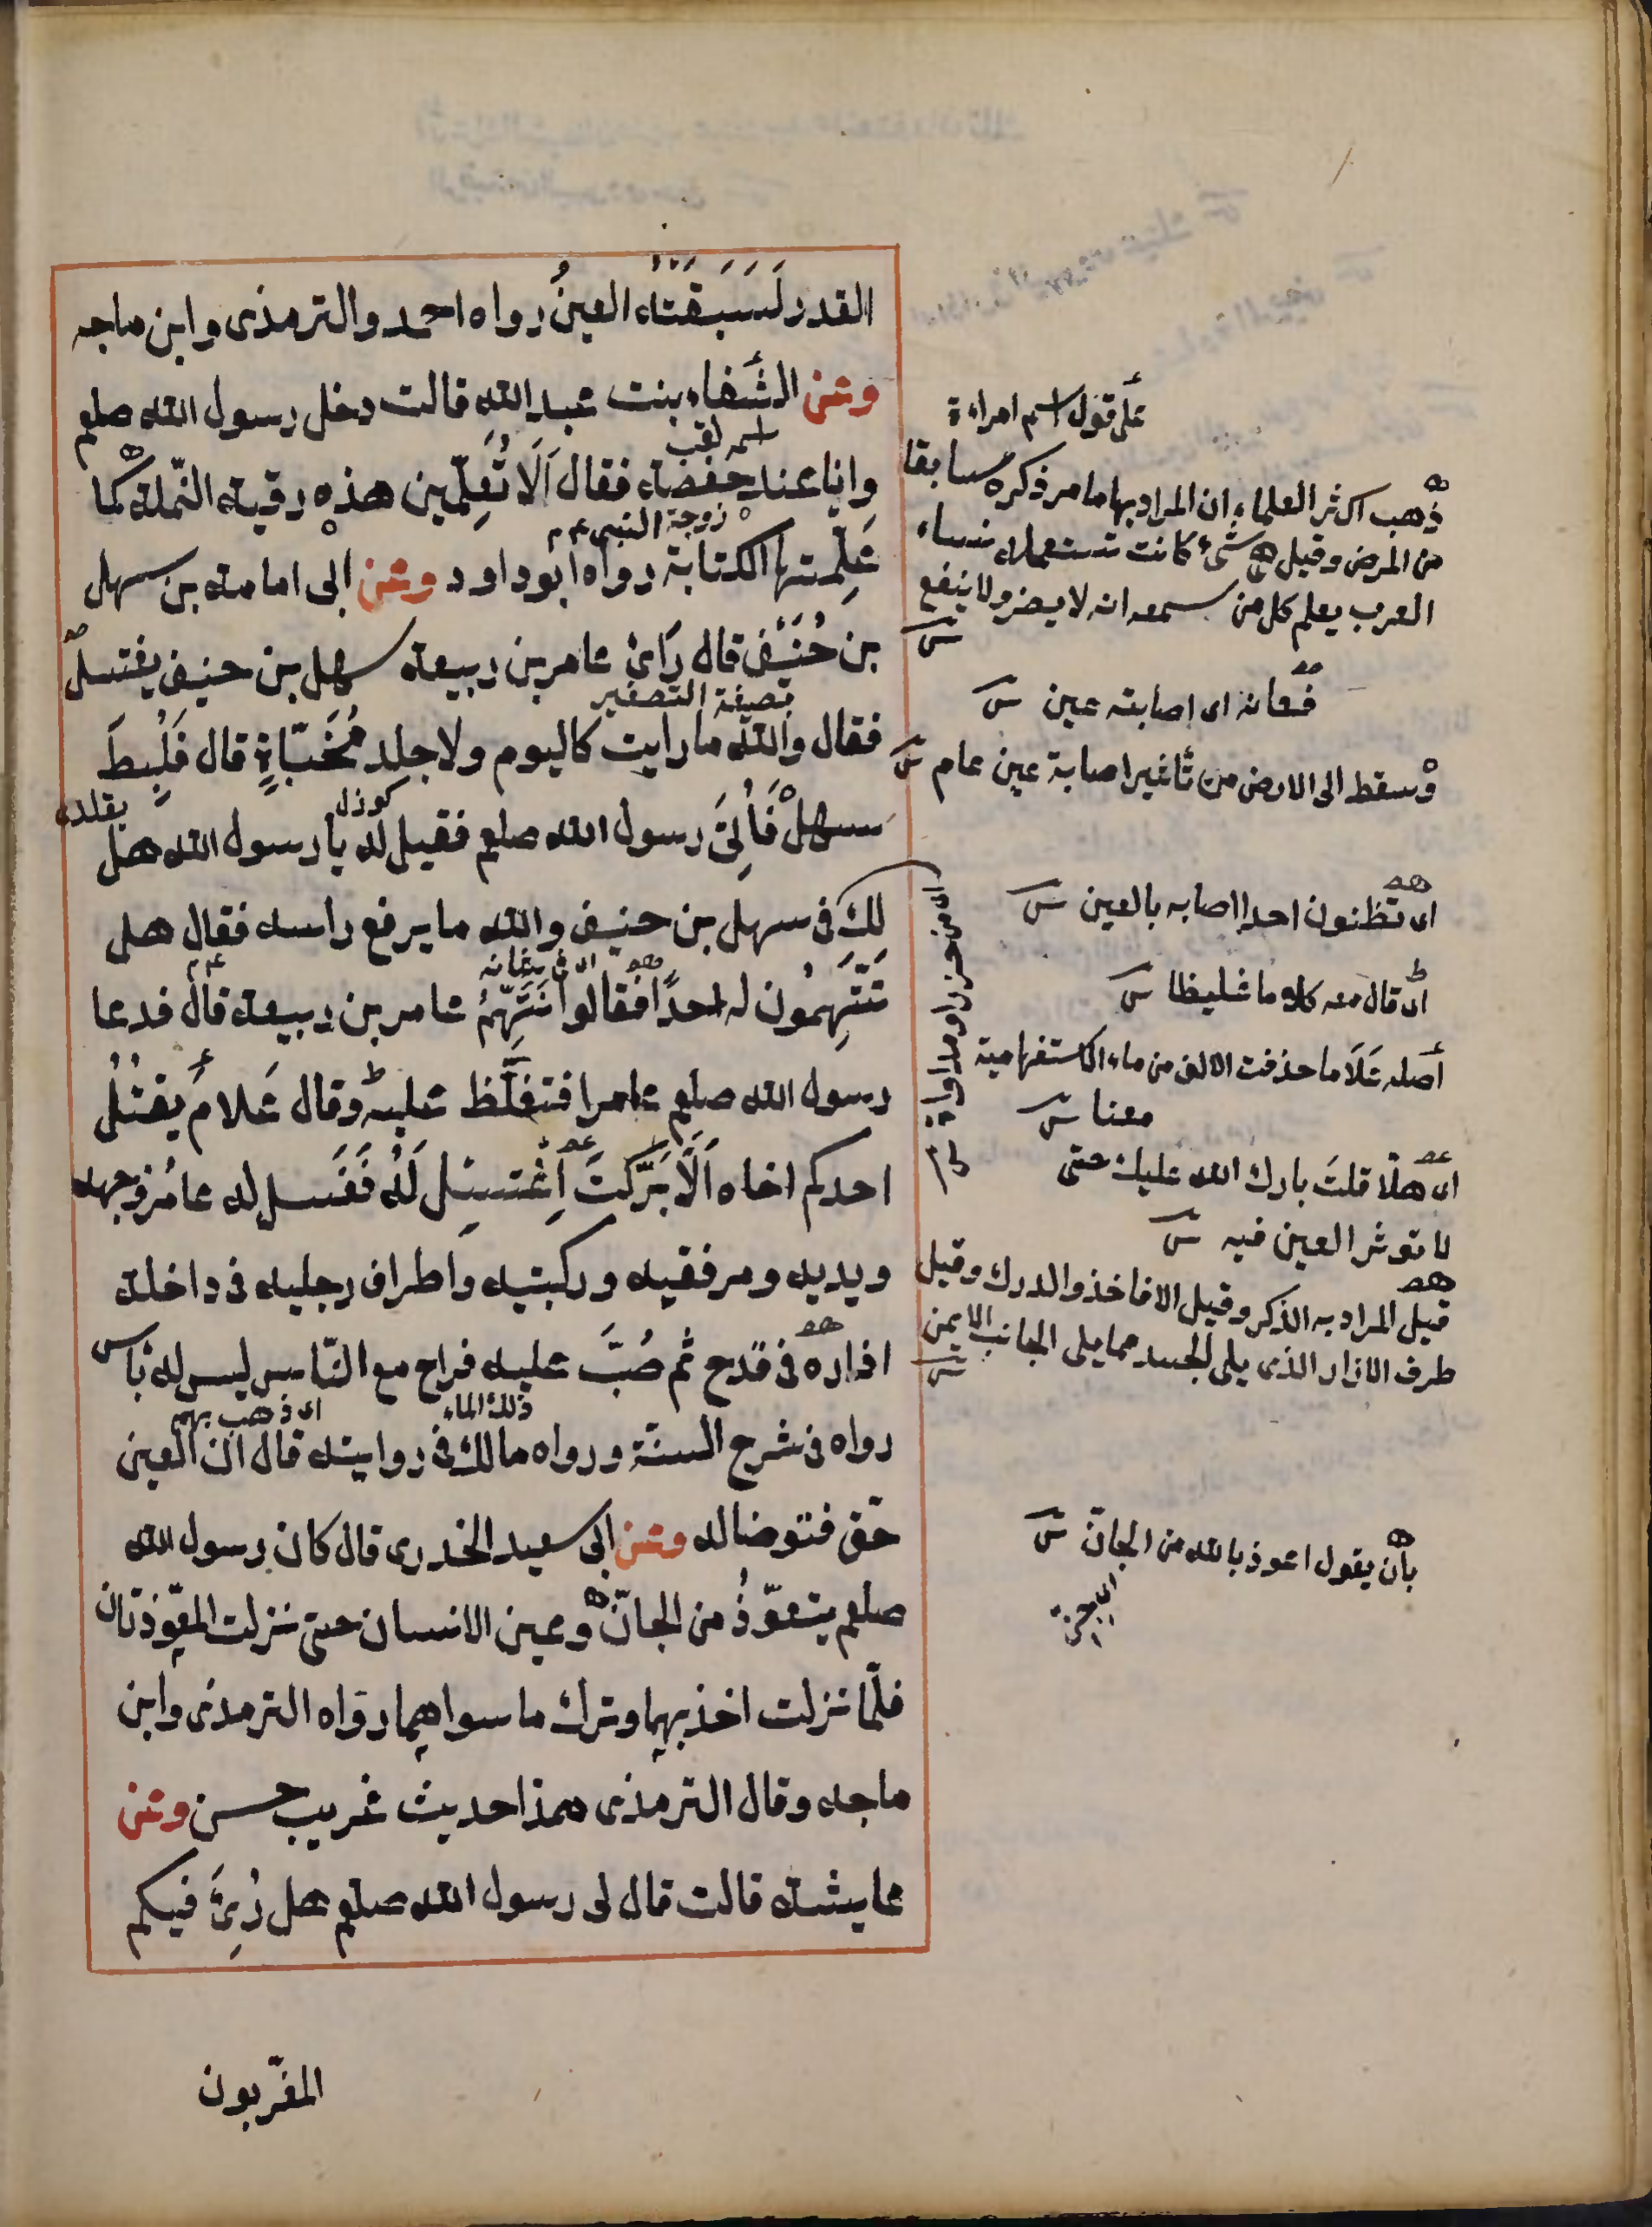 القدر لَسَبَقَتْه العينُ رواه احمد والترمذى وابن ماجه
وعن الشَّفاء بنت عبد الله قالت دخل رسول الله صلعم
وانا عند حفصة فقال اَلَا تُعلِّمين هذه رقية النّملة كما
عَلِّمتها الكتابة رواه ابو داود وعن ابى امامة بن سهل
بن حُنَيْف قال رَاىَ عامر بن ربيعة سهل بن حنيف يغتسل
فقال والله ما رايت كاليوم ولا جلد مُخَبّاةٍ قال فَلُبِطَ
سهلٌ فَاُتِىَ رسول الله صلعم فقيل له يا رسول الله هل
لك فى سهل بن حنيف والله ما يرفع راسه فقال هل
تَتَّهِمُون له احدًا فقالوا نَتَّهِمُ عامر بن ربيعة قال فدعا
رسول الله صلعم عامرا فتغلَّظ عليه وقال عَلامَ يقتُلُ
احدكم اخاه اَلَّا بَرَّكتَ اِغْتسِل لَهُ فَغَسل له عامُر وجهه
ويديه ومرفقيه وركبتيه واطراف رجليه فى داخلة
ازاره فى قدح ثم صُبَّ عليه فراح مع النّاس ليس له بَأس
رواه فى شرح السنّة ورواه مالك فى روايته قال ان العين
حَق فتوضا له وعن ابى سعيد الخدرى قال كان رسول الله
صلعم يتعوّذُ من الجانّ وعين الانسان حتى نزلت المعوّذتان
فلمّا نزلت اخذ بهما وترك ما سواهما رواه الترمذى وابن
ماجه وقال الترمذى هذا حديث غريب حسن وعن
عايشة قالت قال لى رسول الله صلعم هل رُئِىَ فيكم
المغرّبون
زوجة النبى عم
بصيغة التصغير
ذلك الماء
اى ذهب بهم
على قول اسم امراءة
ذهب اكثر العلماء ان المراد بها ما مر ذكره سابقا
من المرض وقيل هى شئ كانت تستعمله نساء
العرب يعلم كل من سمعه انه لا يضر ولا ينفع
فعانه اى اصابته عين
وسقط الى الارض من تأثير اصابة عين عام
اى تظنون احدا اصابه بالعين
اى قال معه كلاما غليظا
أصله عَلَا ما حذفت الالف من ماء الاستفهامية
معنا
اى هلّا قلتَ بارك الله عليك حتى
لا توثر العين فيه
قيل المراد به الذكر وقيل الافاخذ والدرك وقيل
طرف الازار الذى يلى الجسد مما يلى الجانب الايمن
بأن يقول اعوذ بالله من الجانّ